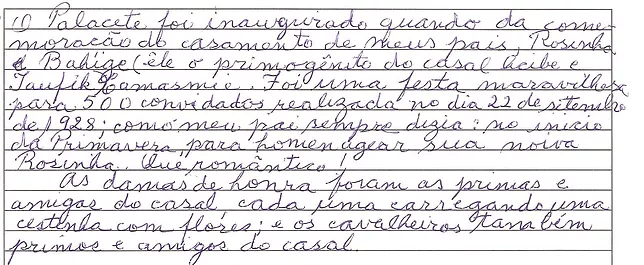 O Palacete foi inaugurado quando da come-
moração do casamento de meus pais, Rosinha
e Badige (êle o primogênito do casal Hcibe e
Taufik Camasmie. Foi uma festa maravilhosa
para 500 convidados realizada no dia 22 de setembro
de 1928; como meu pai sempre dizia: no inicio
da Primavera, para homenagear sua noiva
Rosinha. Que romântico!
As damas de honra foram as primas e
amigas do casal, cada uma carregando uma
cestinha com flores; e os cavalheiros também
primos e amigos do casal.